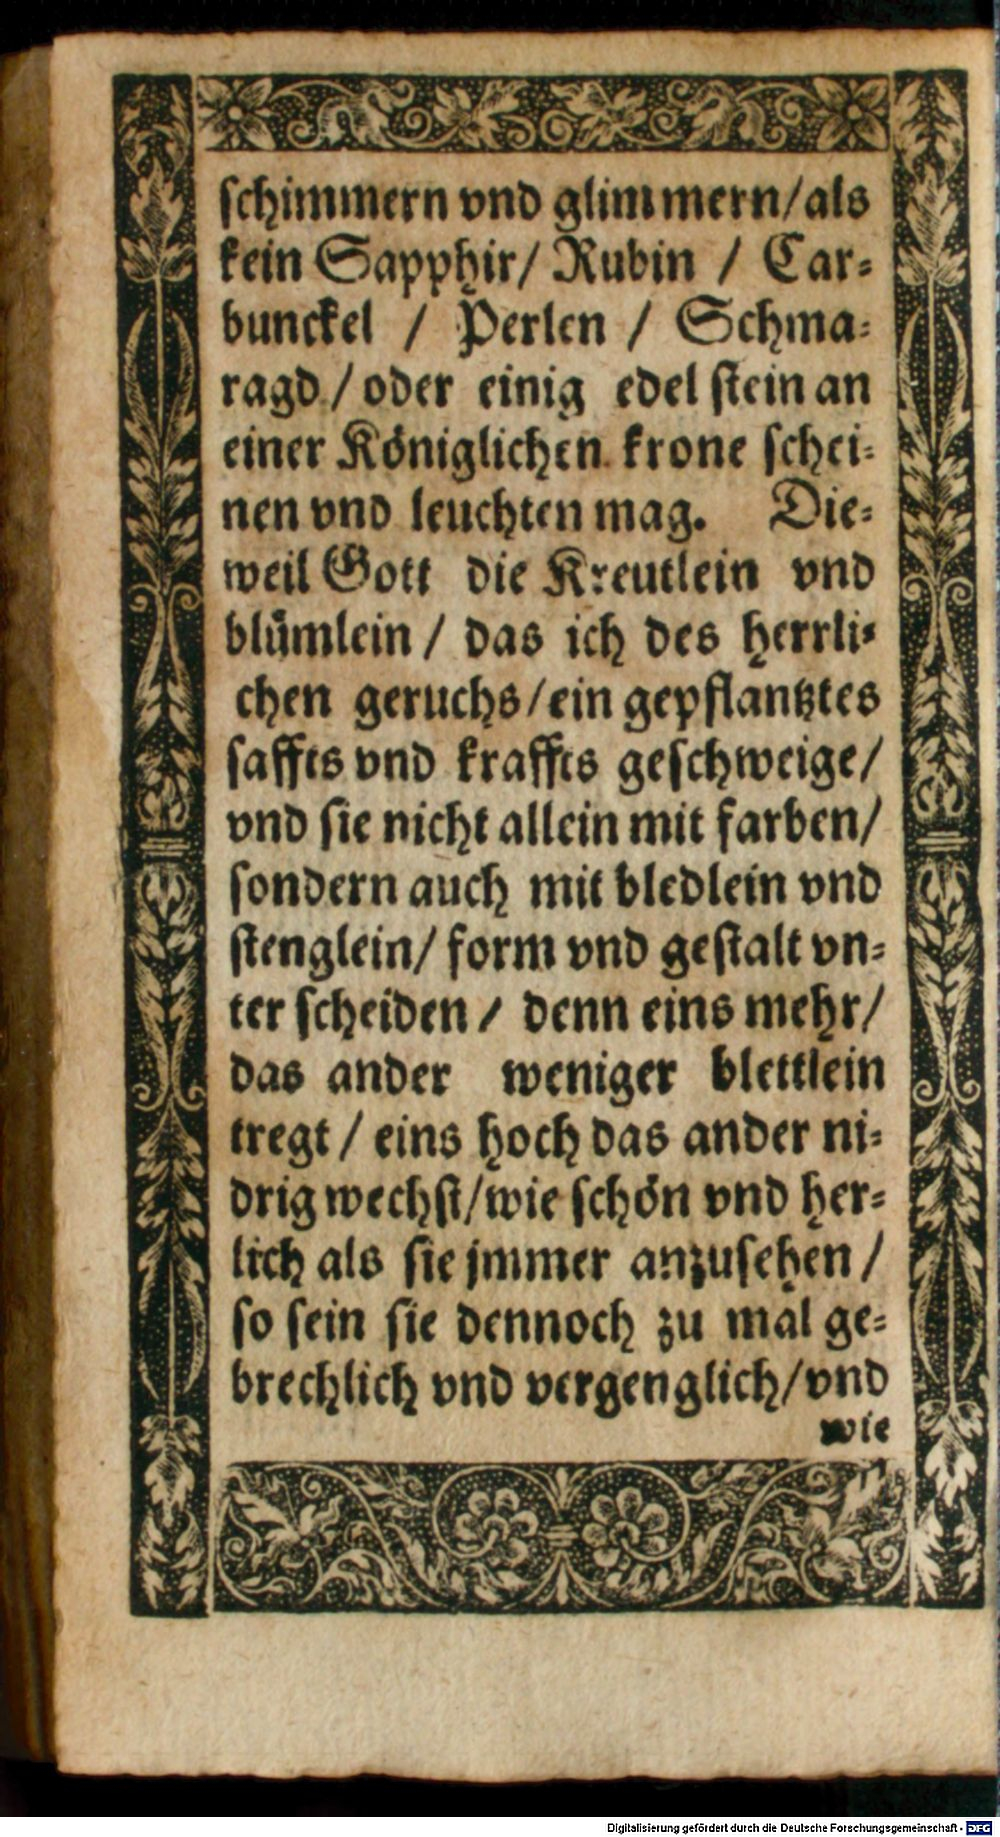 schimmern vnd glimmern/als
kein Sapphir/ Rubin / Car-
bunckel / Perlen / Schma-
ragd / oder einig edel stein an
einer Königlichen krone schei-
nen vnd leuchten mag. Die-
weil Gott die Kreutlein vnd
blümlein / das ich des herrli-
chen geruchs/ein gepflantztes
saffts vnd kraffts geschweige/
vnd sie nicht allein mit farben/
sondern auch mit bledlein vnd
stenglein/ form vnd gestalt vn-
ter scheiden / denn eins mehr/
das ander weniger blettlein
tregt / eins hoch das ander ni-
drig wechst/wie schön vnd her-
lich als sie jmmer anzusehen /
so sein sie dennoch zu mal ge-
brechlich vnd vergenglich/vnd
wie
Digitalisierung gefördert durch die Deutsche Forschungsgemeinschaft - DFG